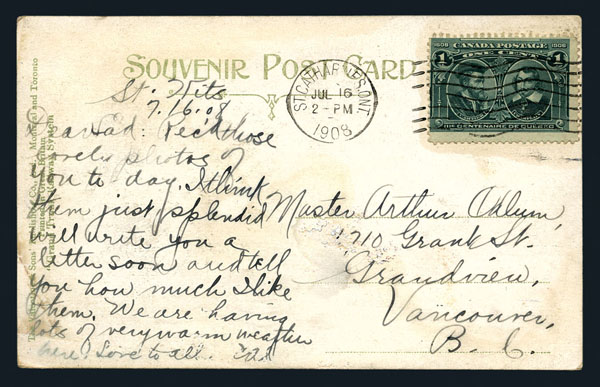 SOUVENIR POST CARD
ST. CATHARINES. ONT.
JUL 16
2 - PM
1908
1608 1908
CANADA POSTAGE
1 ONE CENT 1
IIIe CENTENAIRE DE QUEBEC
St. Kits
7.16.08
Dear Lad: Rec'd those
lovely photos of
you to day. I think
them just splendid
will write you a
letter soon and tell
you how much I like
them. We are having
lots of very warm weather
here. Love to all.
Master Arthur
1710 Grant St.
Grandview,
Vancouver,
B. C.
Montreal and Toronto
Grand Trunk Railway System